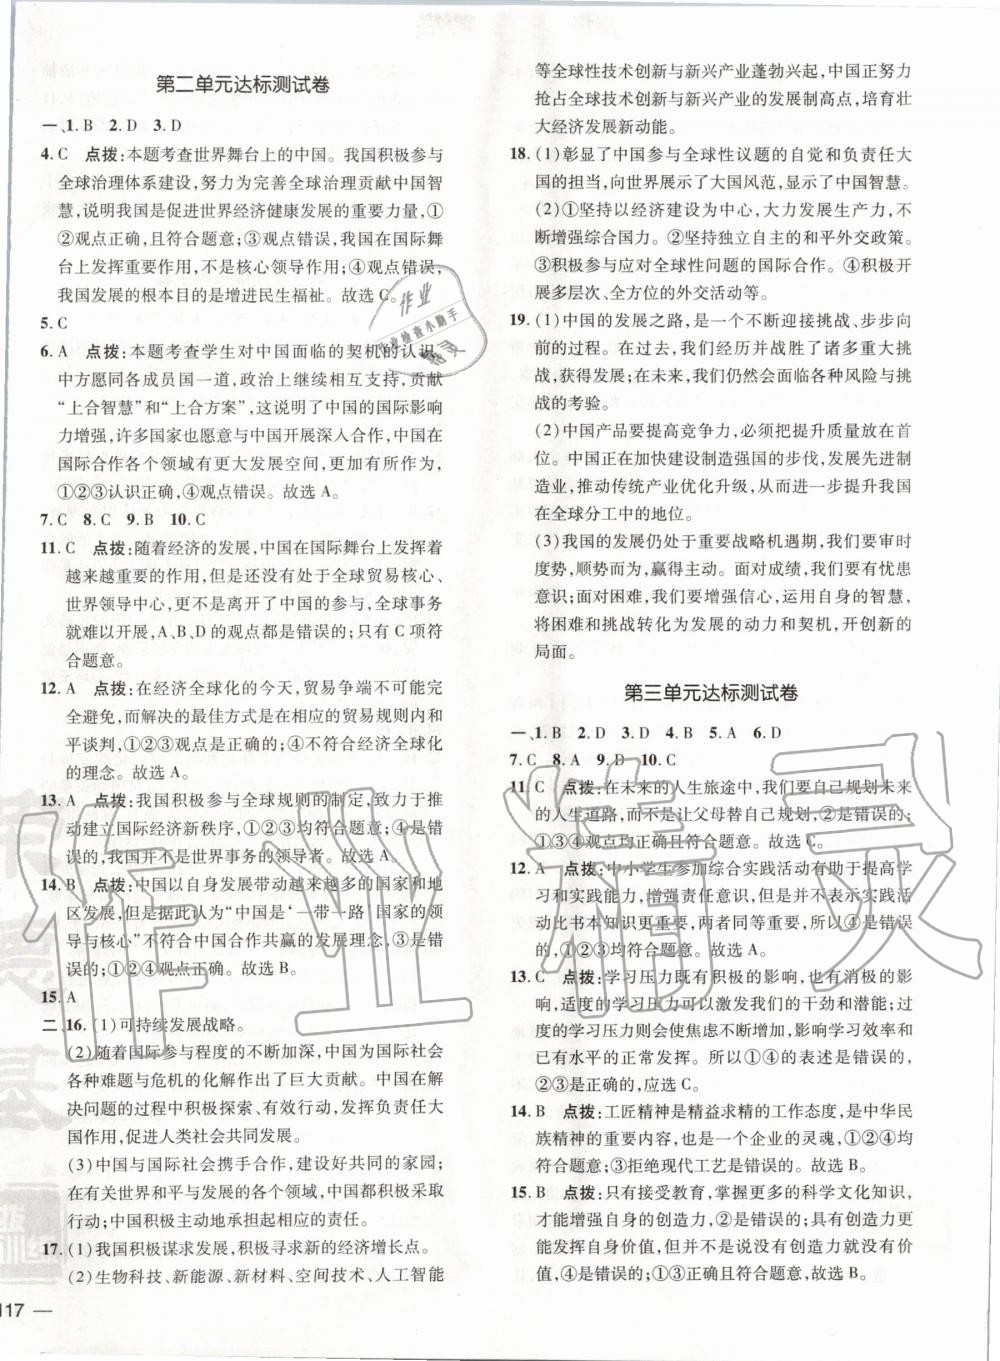 第二单元达标测试卷
一、1. B 2. D 3. D
4. C 点拨:本题考查世界舞台上的中国。我国积极参与
全球治理体系建设,努力为完善全球治理贡献中国智
慧,说明我国是促进世界经济健康发展的重要力量,①
②观点正确,且符合题意;③观点错误,我国在国际舞
台上发挥重要作用,不是核心领导作用;④观点错误,
我国发展的根本目的是增进民生福祉。故选 C。
5. C
6. A 点拨:本题考查学生对中国面临的契机的认识。
中方愿同各成员国一道,政治上继续相互支持,贡献
“上合智慧”和“上合方案”,这说明了中国的国际影响
力增强,许多国家也愿意与中国开展深入合作,中国在
国际合作各个领域有更大发展空间,更加有所作为,
①②③认识正确,④观点错误。故选 A。
7. C 8. C 9. B 10. C
11. C 点拨:随着经济的发展,中国在国际舞台上发挥着
越来越重要的作用,但是还没有处于全球贸易核心、
世界领导中心,更不是离开了中国的参与,全球事务
就难以开展,A、B、D 的观点都是错误的;只有 C 项符
合题意。
12. A 点拨:在经济全球化的今天,贸易争端不可能完
全避免,而解决的最佳方式是在相应的贸易规则内和
平谈判,①②③是正确的;④不符合经济全球化
的理念。故选 A。
13. A 点拨:我国积极参与全球规则的制定,致力于推
动建立国际经济新秩序,①②③均符合题意;④是错
误的,我国并不是世界事务的领导者。故选 A。
14. B 点拨:中国以自身发展带动越来越多的国家和地
区发展,但是据此认为“中国是‘一带一路’国家的领
导与核心”不符合中国合作共赢的发展理念,③是错
误的;①②④观点正确。故选 B。
15. A
二、16. (1)可持续发展战略。
(2)随着国际参与程度的不断加深,中国为国际社会
各种难题与危机的化解作出了巨大贡献。中国在
解决问题的过程中积极探索、有效行动,发挥负责任大
国作用,促进人类社会共同发展。
(3)中国与国际社会携手合作,建设好共同的家园;
在有关世界和平与发展的各个领域,中国都积极采取
行动;中国积极主动地承担起相应的责任。
17. (1)我国积极谋求发展,积极寻求新的经济增长点。
(2)生物科技、新能源、新材料、空间技术、人工智能
117 —
等全球性技术创新与新兴产业蓬勃兴起,中国正努力
抢占全球技术创新与新兴产业的发展制高点,培育壮
大经济发展新动能。
18. (1)彰显了中国参与全球性议题的自觉和负责任大
国的担当,向世界展示了大国风范,显示了中国智慧。
(2)①坚持以经济建设为中心,大力发展生产力,不
断增强综合国力。②坚持独立自主的和平外交政策。
③积极参与应对全球性问题的国际合作。④积极开
展多层次、全方位的外交活动等。
19. (1)中国的发展之路,是一个不断迎接挑战、步步向
前的过程。在过去,我们经历并战胜了诸多重大挑
战,获得发展;在未来,我们仍然会面临各种风险与挑
战的考验。
(2)中国产品要提高竞争力,必须把提升质量放在首
位。中国正在加快建设制造强国的步伐,发展先进制
造业,推动传统产业优化升级,从而进一步提升我国
在全球分工中的地位。
(3)我国的发展仍处于重要战略机遇期,我们要审时
度势,顺势而为,赢得主动。面对成绩,我们要有忧患
意识;面对困难,我们要增强信心,运用自身的智慧,
将困难和挑战转化为发展的动力和契机,开创新的
局面。
第三单元达标测试卷
一、1. B 2. D 3. D 4. B 5. A 6. D
7. C 8. A 9. D 10. C
11. C 点拨:在未来的人生旅途中,我们要自己规划未来
的人生道路,而不是让父母替自己规划,②是错误的;
①③④观点均正确且符合题意。故选 C。
12. A 点拨:中小学生参加综合实践活动有助于提高学
习和实践能力,增强责任意识,但并不表示实践活
动比书本知识更重要,两者同等重要。所以④是错误
的,①②③均符合题意。故选 A。
13. C 点拨:学习压力既有积极的影响,也有消极的影
响,适度的学习压力可以激发我们的干劲和潜能;过
度的学习压力则会使焦虑不断增加,影响学习效率和
已有水平的正常发挥。所以①④的表述是错误的,
②③是正确的,应选 C。
14. B 点拨:工匠精神是精益求精的工作态度,是中华民
族精神的重要内容,也是一个企业的灵魂,①②④均
符合题意;③拒绝现代工艺是错误的。故选 B。
15. B 点拨:只有接受教育,掌握更多的科学文化知识,
才能增强自身的创造力,②是错误的;具有创造力能
更好地发挥自身价值,但并不能说没有创造力就没有价
值,④是错误的;①③均正确且符合题意。故选 B。
作业
作业检查小助手
精灵
作业精灵